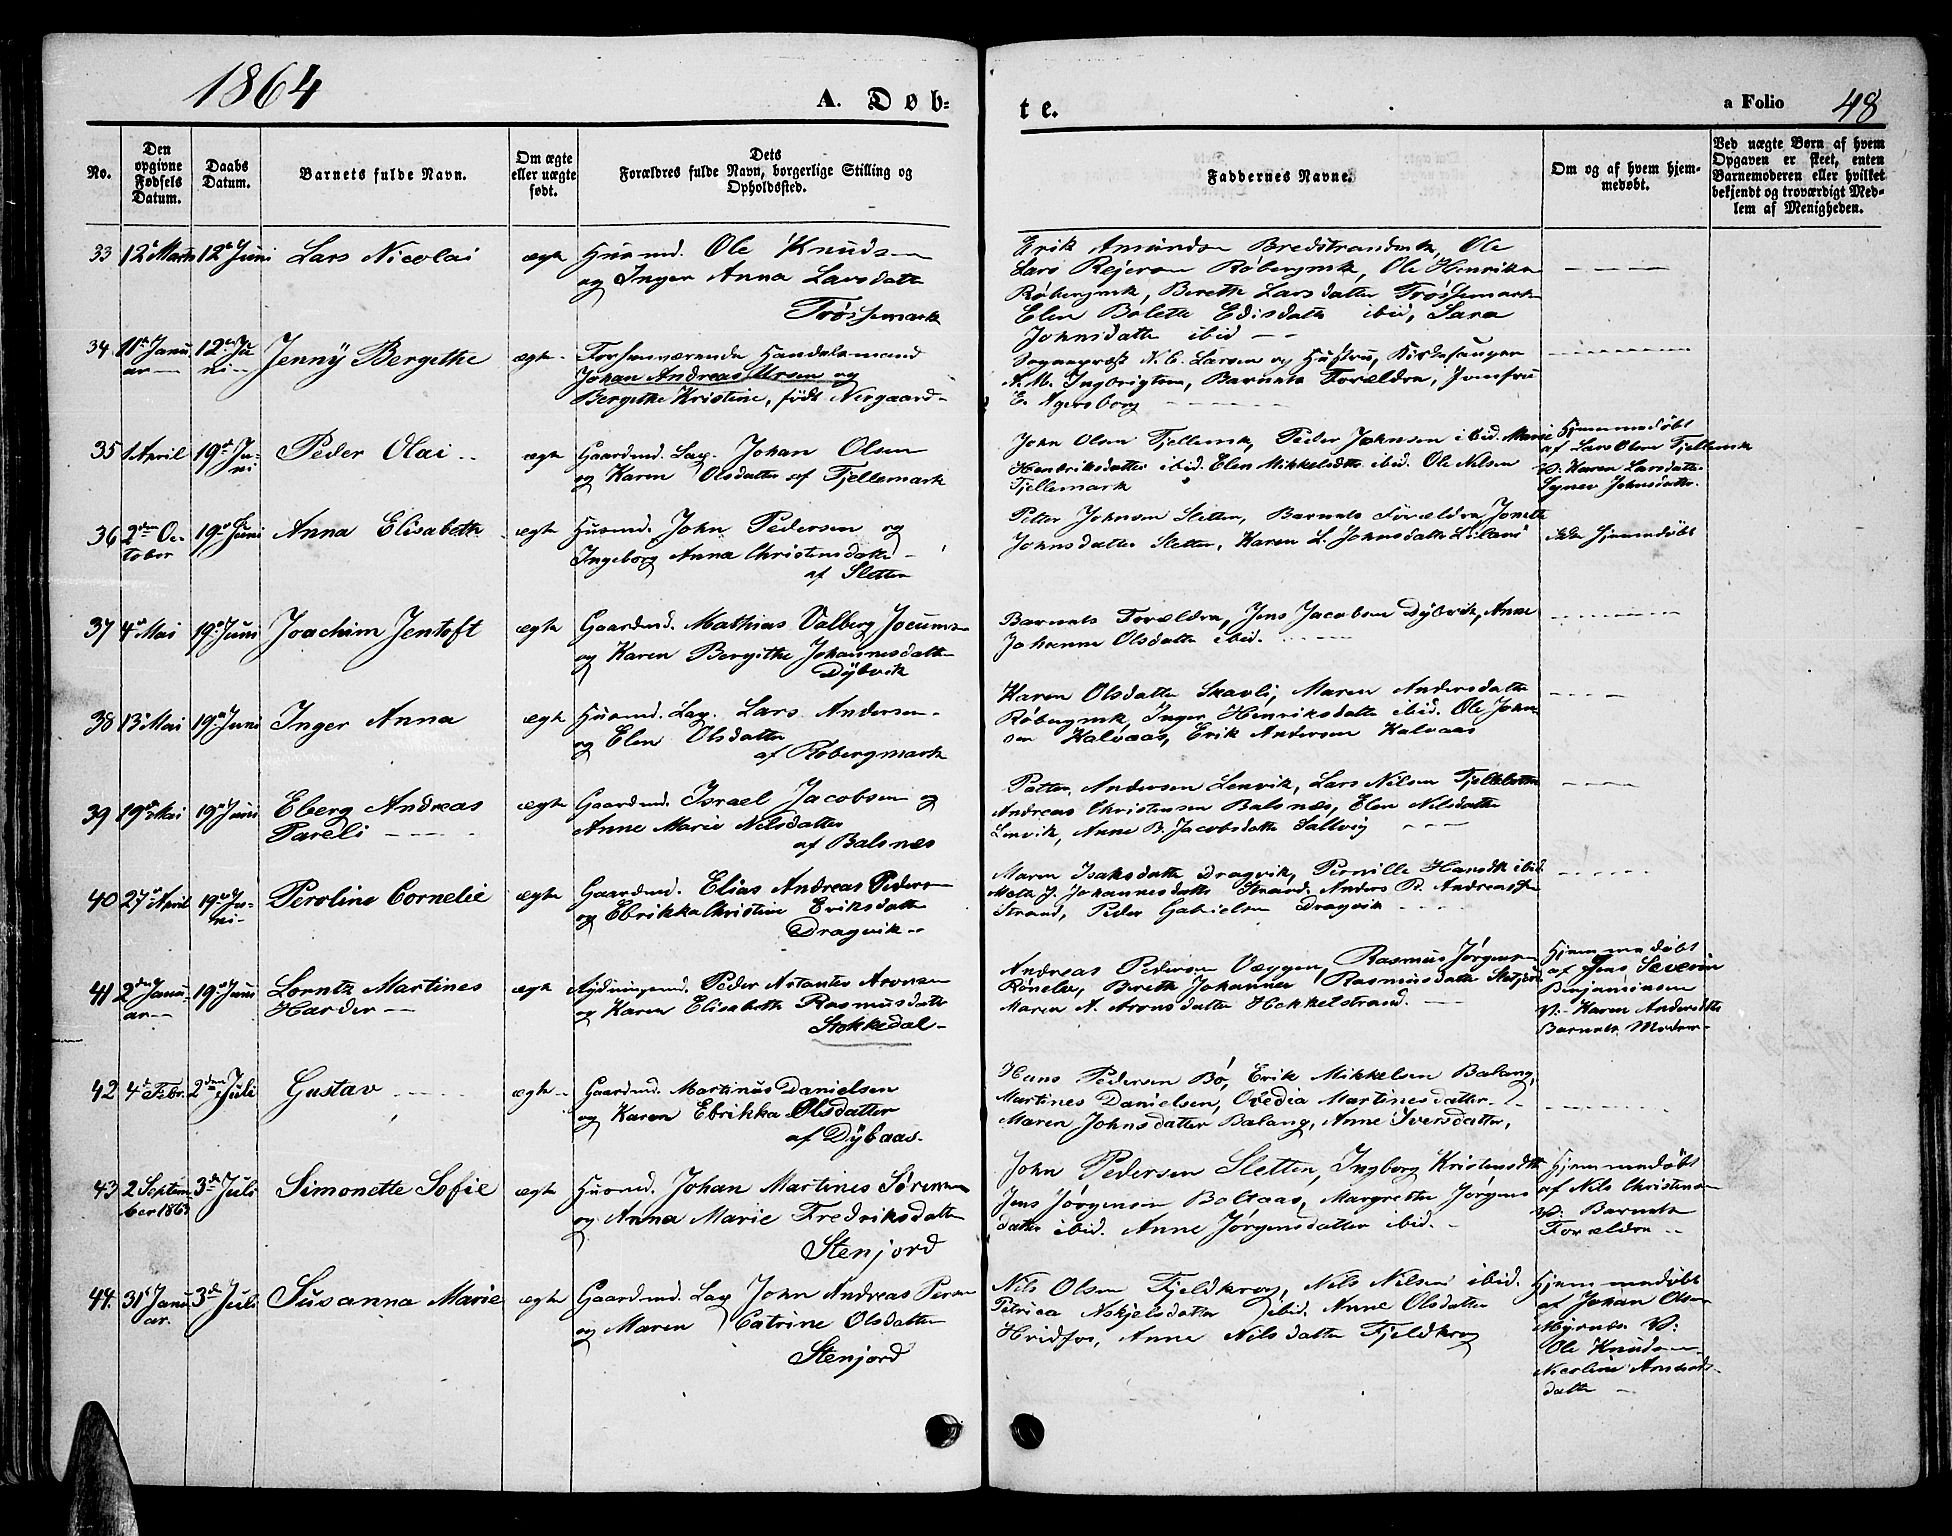 1864
A. Døb-
te.
a Folio 48
No.
Den opgivne Fødsels Datum.
Daabs Datum.
Barnets fulde Navn.
Om ægte eller uægte født.
Dets Forældres fulde Navn, borgerlige Stilling og Opholdssted.
Faddernes Navne.
Om og af hvem hjemmedøbt.
Ved uægte Børn af hvem Opgaven er skeet, enten Barnemoderen eller hvilket bekjendt og troværdigt Medlem af Menigheden.
33 12 Marts 12 Juni Lars Nicolai ægte Husmd. Ole Knudsen
og Inger Anna Larsdatter
Trøssemark
Erik Amundsen Bredstrandmk, Ole
Lars Rejersen Røbergmk, Ole Henriksen
Røbergmk, Berethe Larsdatter Trøssemark
Elen Bolette Edisdatter ibid, Sara
Johnsdatter ibid
34 11te Janu
ar 12te Ju
ni Jenny Bergethe ægte Forhenværende Handelsmand
Johan Andreas Ursen og
Bergethe Kristine, født Nergaard
Sogneprest N. C. Larsen og Hustru, Kirkesanger
A. M. Ingbrigtsen, Barnets Forældre, Jomfru
E. Agersborg
35 1 April 19de Ju
ni Peder Olai ægte Gaardmd. Lap. Johan Olsen
og Karen Olsdatter af Fjellemark
John Olsen Fjellemk, Peder Johnsen ibid. Marie
Henriksdatter ibid. Elen Mikkelsdtr ibid. Ole Nilsen
Fjellemark
Hjemmedøbt
af Lars Olsen Fjellemk
V: Karen Larsdatter
Synev Johnsdatter
36 2den Oc
tober 19de Juni Anna Elisabeth ægte Husmd. John Pedersen og
Ingeborg Anna Christensdatter
af Sletten
Petter Johnsen Sletten, Barnets Forældre, Jonette
Johnsdatter Sletten, Karen L. Johnsdatter
ikke Hjemmedøbt
37 4de Mai 19de Juni Joachim Jentoft ægte Gaardmd. Mathias Valberg Jocumsen
og Karen Bergithe Johannesdatter
Dybvik
Barnets Forældre, Jens Jacobsen Dybvik, Anne
Johanne Olsdatter ibid.
38 13 Mai 19de Juni Inger Anna ægte Husmd. Lap. Lars Andersen
og Elen Olsdatter
af Røbergmark
Karen Olsdatter Skavli, Maren Andersdatter
Røbergmk, Inger Henriksdatter ibid. Ole John
sen Kalvaas, Erik Andersen Kalvaas
39 19de Mai 19de Juni Eberg Andreas
Pareli ægte Gaardmd. Israel Jacobsen og
Anne Marie Nilsdatter
af Balsnes
Petter Andersen Lenvik, Lars Nilsen
Andreas Christensen Balsnes, Elen Nilsdatter
Lenvik, Anne B. Jacobsdatter Sallvig
40 27de April 19de Ju
ni Peroline Cornelie ægte Gaardmd. Elias Andreas Pedersen
og Ebrikka Christine Eriksdatter
Dragvik
Maren Isaksdatter Dragvik, Pernille Hansdtr ibid
Meth J. Johannesdatter Strand, Anders P. Andreassen
Strand, Peder Gabrielsen Dragvik
41 2den Janu
ar 19de Juni Lorntz Martines
Harder ægte Rydningsmd. Peder Astantes Aronsen
og Karen Elisabeth Rasmusdatter
Stokkedal
Andreas Pedersen Væggen, Rasmus Jørgensen
Rønelv, Berith Johannes Rasmusdatter
Maren A. Aronsdatter Hekkelstrand.
Hjemmedøbt
af Jens Severin
Benjaminsen
V: Karen Andersdtr
Barnets Moder
42 4de Febr. 2den Juli Gustav ægte Gaardmd. Martinus Danielsen
og Karen Ebrikka Olsdatter
af Dybaas
Hans Pedersen Bø, Erik Mikkelsen Balang,
Martines Danielsen, Ovedia Martinesdatter
Maren Johnsdatter Balang, Anne Iversdatter,
43 2 Septem
ber 1863 3de Juli Simonette Sofie ægte Husmd. Johan Martines Sørensen
og Anna Marie Fredriksdatter
Stenjord
John Pedersen Sletten, Ingborg Kristensdtr
Jens Jørgensen Boltaas, Margrethe Jørgens
datter ibid. Anne Jørgensdatter ibid.
Hjemmedøbt
af Nils Christensen
V: Barnets
Forældre
44. 31te Janu
ar. 3de Juli Susanna Marie ægte Gaardmd. Lap John Andreas Persen
og Maren Catrine Olsdatter
Stenjord
Nils Olsen Fjeldkrog, Nils Nilsen ibid.
Petrica Askjelsdatter ibid. Anne Olsdatter
Hvidfos, Anne Nilsdatter Fjeldkrog
Hjemmedøbt
af Johan Olsen
V:
Ole Knudsen
Nicoline Amunds
datter